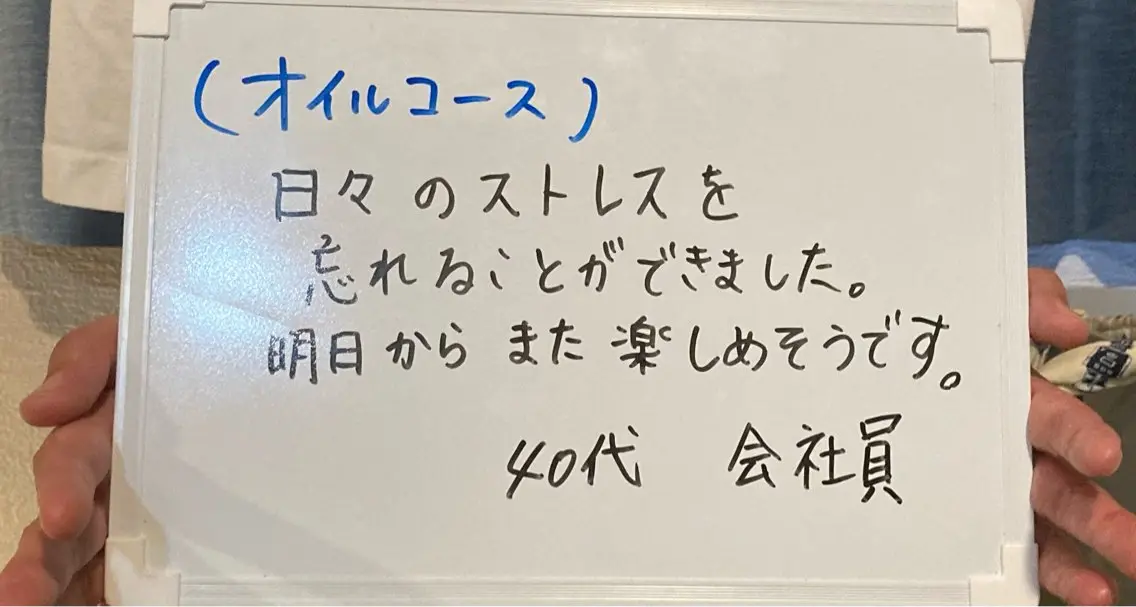 (オイルコース)
日々のストレスを
忘れることができました。
明日からまた楽しめそうです。
40代 会社員